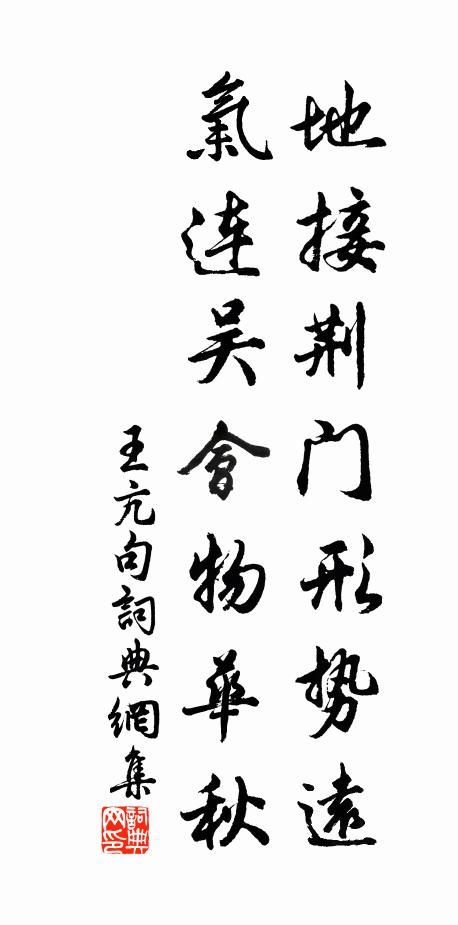 地接荆门形势遠
氣连吴會物華秋
王亢句詞典網集
詞典网印